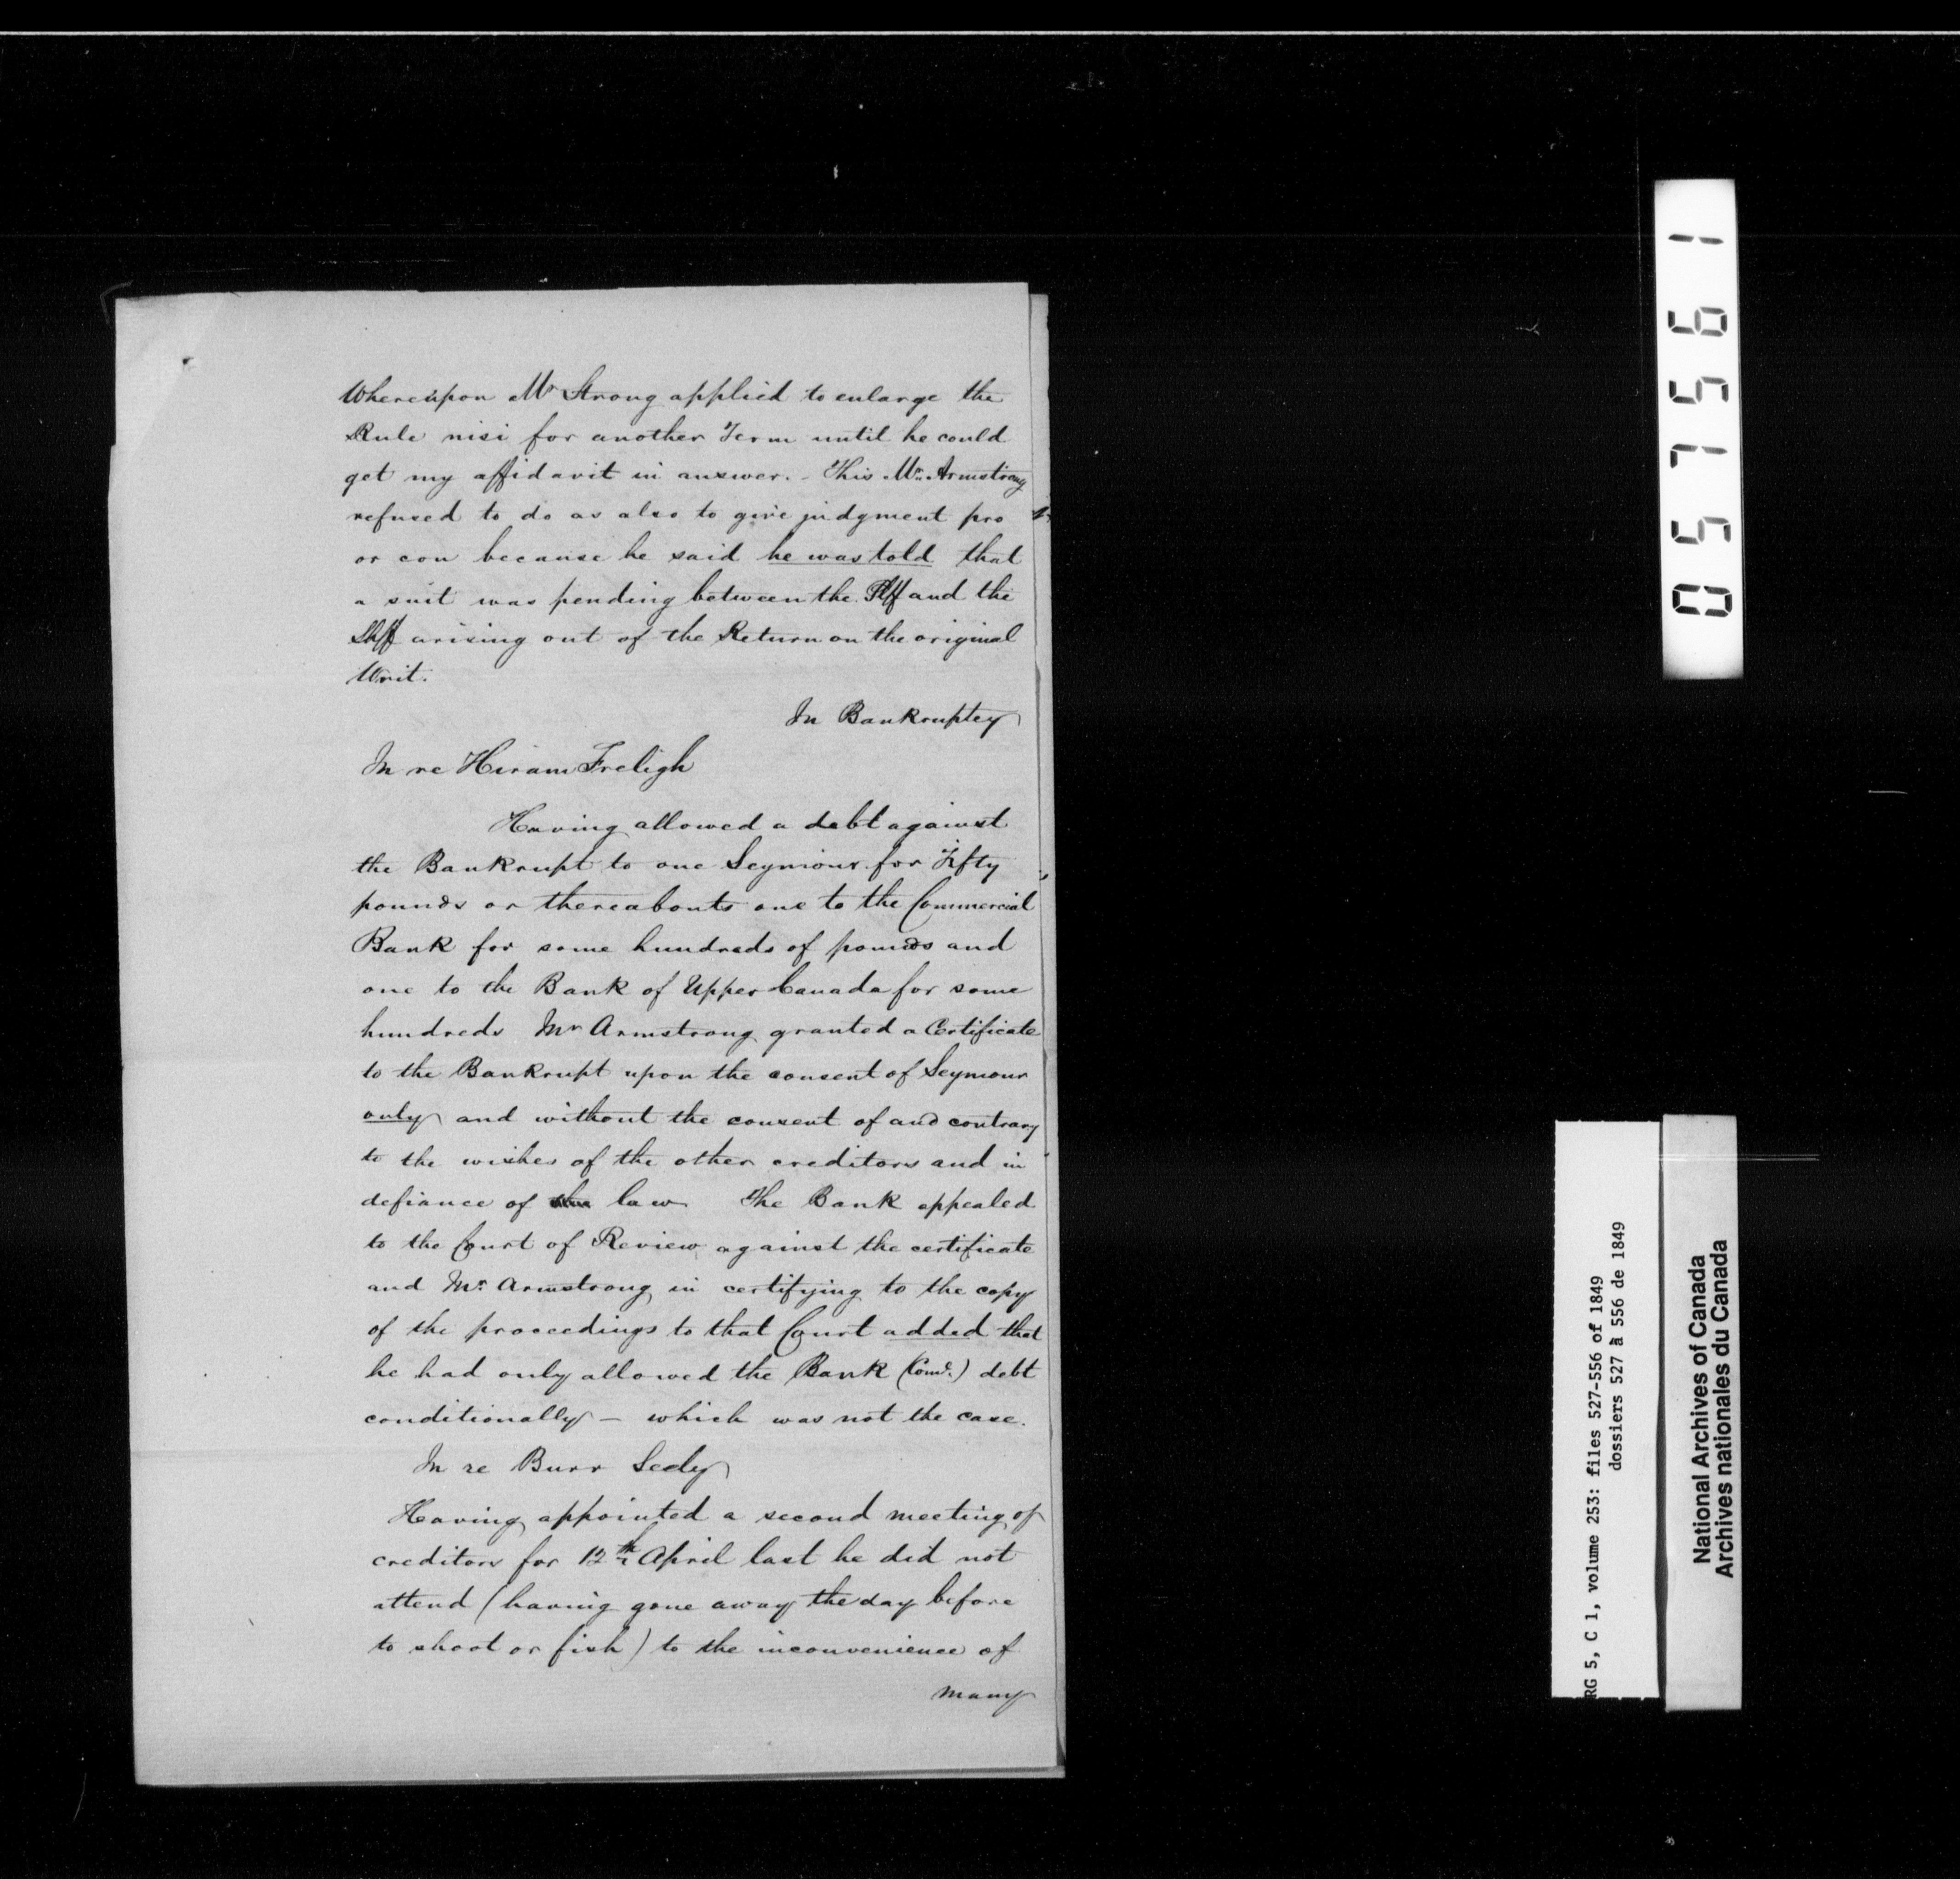 Whereupon Mr Strong applied to enlarge the
Rule nisi for another Term until he could
get my affidavit in answer. - This Mr. Armstrong
refused to do as also to give judgment pro
or con because he said he was told that
a suit was pending between the Plff and the
Shff arising out of the Return on the original
Writ.
In Bankruptcy
In re Hiram Freligh
Having allowed a debt against
the Bankrupt to one Seymour for Fifty
pounds or thereabouts one to the Commercial
Bank for some hundreds of pounds and
one to the Bank of Upper Canada for some
hundreds Mr Armstrong granted a Certificate
to the Bankrupt upon the consent of Seymour
only and without the consent of and contrary
to the wishes of the other creditors and in
defiance of law The Bank appealed
to the Court of Review against the certificate
and Mr. Armstrong in certifying to the copy
of the proceedings to that Court added that
he had only allowed the Bank (Coml.) debt
conditionally – which was not the case.
In re Burr Seely
Having appointed a second meeting of
creditors for 12th April last he did not
attend (having gone away the day before
to shoot or fish) to the inconvenience of
many
057561
RG 5, C 1, volume 253: files 527-556 of 1849
dossiers 527 à 556 de 1849
National Archives of Canada
Archives nationales du Canada